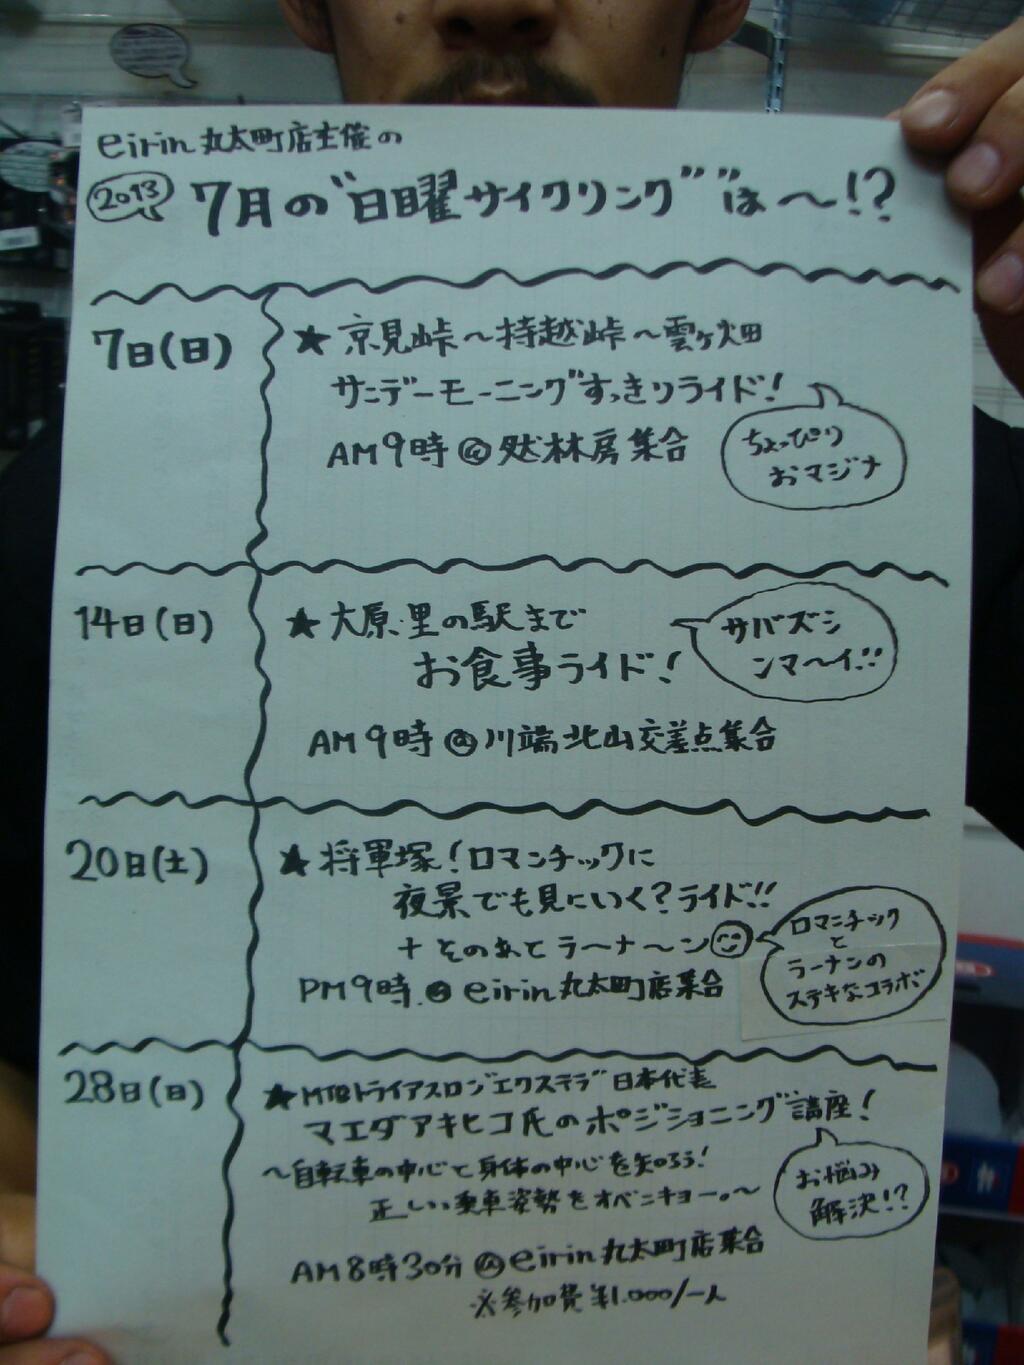 eirin 丸太町店主催の
2013 7月の"日曜サイクリング"は〜!?
7日(日)
★京見峠〜持越峠〜雲ケ畑
サンデーモーニングすっきりライド!
ちょっぴり
おマジナ
AM9時@然林房集合
14日(日)
★大原・里の駅まで
お食事ライド!
サバズシ
ンマ〜イ!!
AM9時@川端北山交差点集合
20日(土)
★将軍塚!ロマンチックに
夜景でも見にいく?ライド!!
+そのあとラーナ〜ン
ロマンチック
と
ラーナンの
ステキなコラボ
PM9時@eirin丸太町店集合
28日(日)
★MTBトライアスロン"エクステラ"日本代表
マエダアキヒコ氏のポジショニング講座!
〜自転車の中心と身体の中心を知ろう!
正しい乗車姿勢をオベンキョー。〜
お悩み
解決!?
AM8時30分@eirin丸太町店集合
※参加費¥1.000/一人